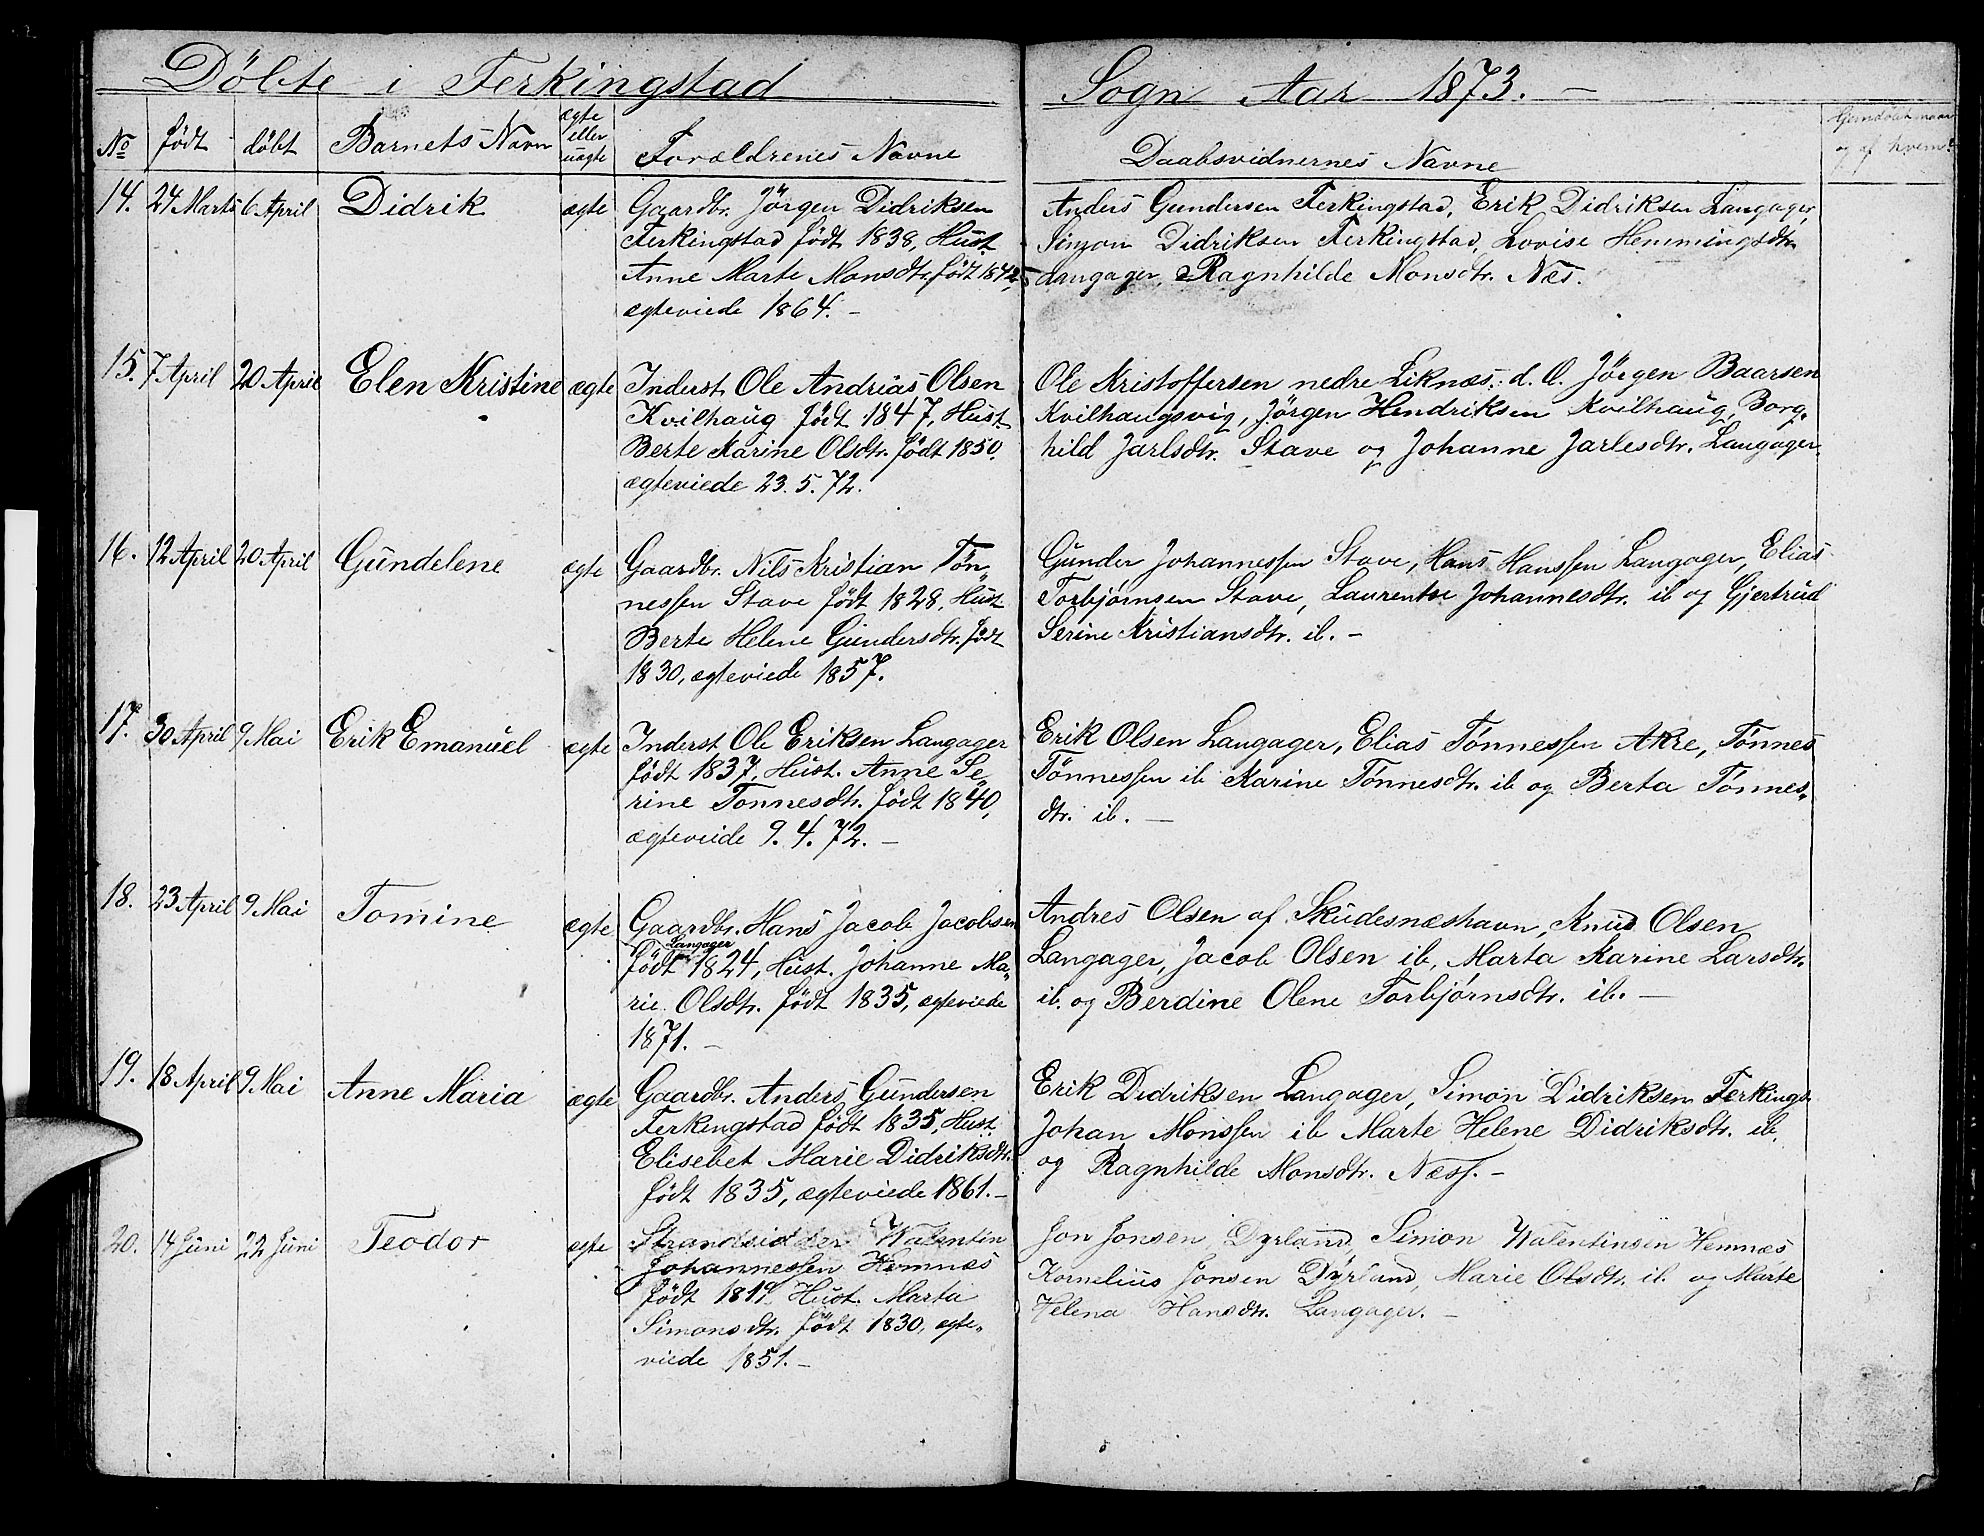 Döbte i Ferkingstad Sogn Aar 1873. —
No
födt
döbt
Barnets Navn
ægte
eller
uægte
Forældrenes Navne
Daabsvidnernes Navne
og af hvem?
14. 24 Marts 6 April Didrik ægte
Gaardbr. Jörgen Didriksen
Ferkingstad födt 1838, Hust.
Anne Marte Monsdtr. födt 1842,
ægteviede 1864. —
Anders Gundersen Ferkingstad, Erik Didriksen Langager,
Simon Didriksen Ferkingstad, Lovise Hemmingsdtr.
Langager, Ragnhilde Monsdtr. Næs.
15. 7 April 20 April Elen Kristine ægte
Inderst Ole Andrias Olsen
Kvilhaug födt 1847, Hust.
Berte Karine Olsdtr. födt 1850.
ægteviede 23. 5. 72.
Ole Kristoffersen nedre Liknæs. d. Æ. Jörgen Baarsen
Kvilhaugsvig, Jörgen Hendriksen Kvilhaug, Borg„
hild Jarlsdtr. Stave og Johanne Jarlesdtr. Langager.
16. 12 April 20 April Gundelene ægte
Gaardbr. Nils Kristian Tön„
nessen Stave födt 1828, Hust.
Berte Helene Gundersdtr. födt
1830, ægteviede 1857.
Gunder Johannessen Stave, Hans Hanssen Langager, Elias
Torbjörnsen Stave, Laurentse Johannesdtr. ib og Gjertrud
Serine Kristiansdtr. ib. —
17. 30 April 9 Mai Erik Emanuel ægte
Inderst Ole Eriksen Langager
födt 1837, Hust. Anne Se„
rine Tönnesdtr. födt 1840,
ægteviede 9. 4. 72. —
Erik Olsen Langager, Elias Tönnessen Akre, Tönnes
Tönnessen ib Karine Tönnesdtr. ib og Berta Tönnes„
dtr. ib. —
18. 23 April 9 Mai Tomine ægte
Gaardbr. Hans Jacob Jacobsen
Langager
födt 1824, Hust. Johanne Ma„
rie Olsdtr. födt 1835, ægteviede
1871. —
Andres Olsen af Skudesnæshavn, Knud Olsen
Langager, Jacob Olsen ib, Marta Karine Larsdtr.
ib. og Berdine Olene Torbjörnsdtr. ib. —
19. 18 April 9 Mai Anne Maria ægte
Gaardbr. Anders Gundersen
Ferkingstad födt 1835, Hust.
Elisebet Marie Didriksdtr.
födt 1835, ægteviede 1861. —
Erik Didriksen Langager, Simon Didriksen Ferkings.
Johan Monssen ib Marte Helene Didriksdtr. ib.
og Ragnhilde Monsdtr. Næss. —
20. 14 Juni 22 Juni Teodor ægte
Strandsidder Walentin
Johannessen Hemnæs
födt 1819 Hust. Marta
Simonsdtr. födt 1830, ægte„
viede 1851. —
Jon Jonsen Dyrland, Simon Walentinsen Hemnæs
Kornelius Jonsen Dyrland, Marie Olsdtr. ib. og Marte
Helena Hansdtr. Langager. —